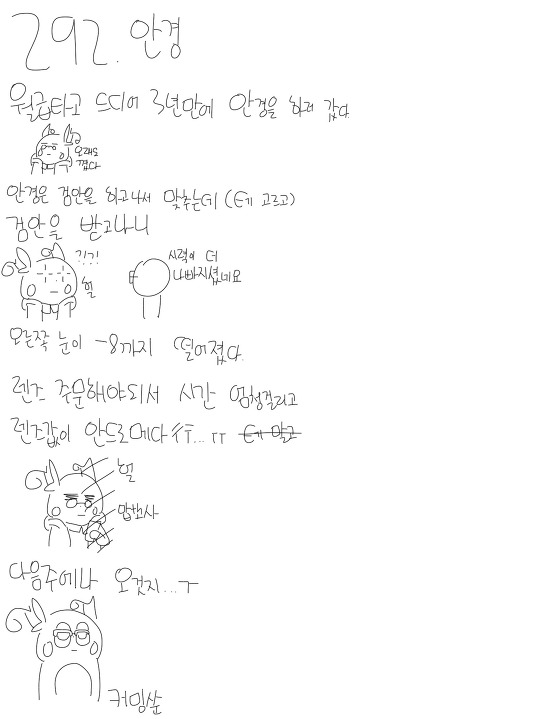 292. 안경
월급타고 드디어 3년만에 안경을 하러 갔다.
오래도
꼈다
안경은 검안을 하고나서 맞추는데 (테 고르고)
검안을 받고나니
?!?!
헐
시력이 더
나빠지셨네요
오른쪽 눈이 -8까지 떨어졌다.
렌즈 주문해야되서 시간 엄청걸리고
렌즈값이 안드로메다 ㅠㅠ... ㅠ 테 말고
헐
맙소사
다음주에나 오겠지...ㅜ
커밍쑨